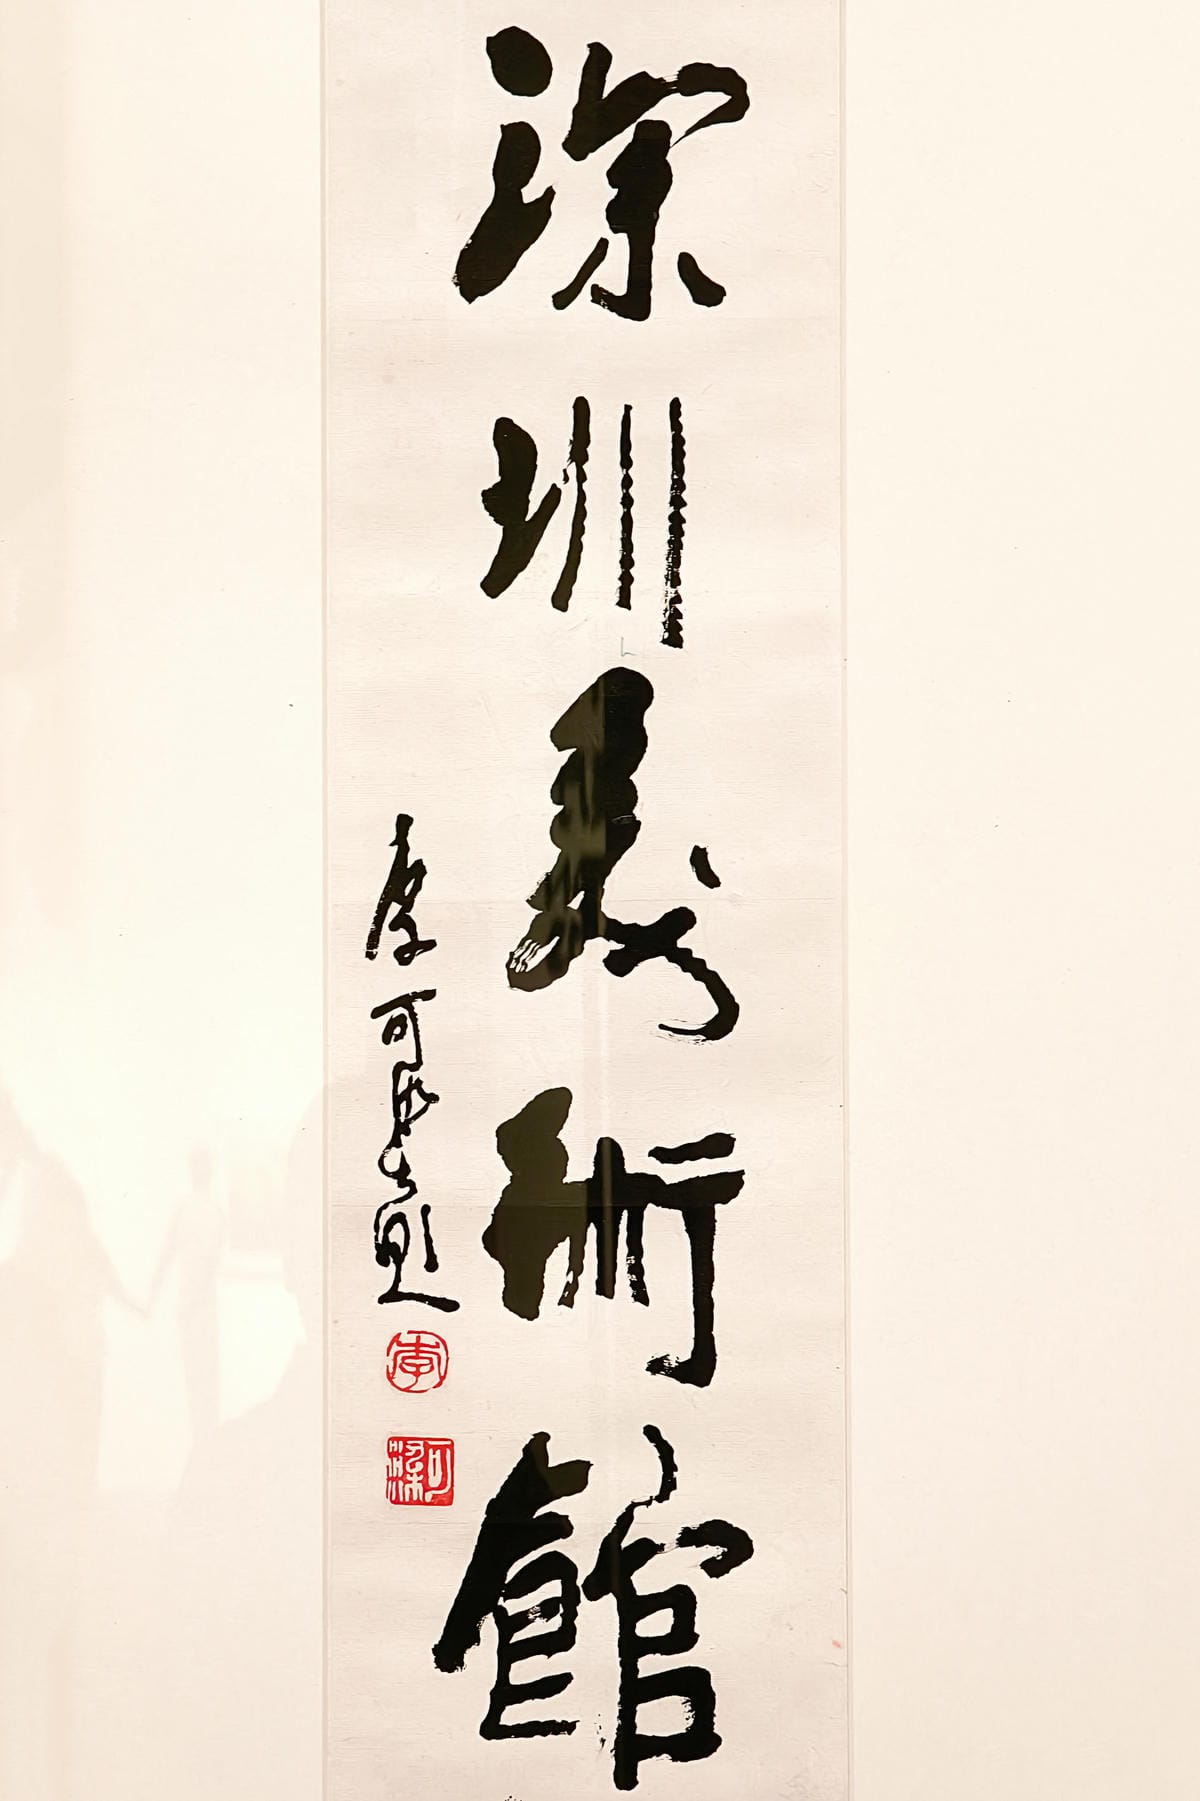 深圳美術館
李可染題
李
可染